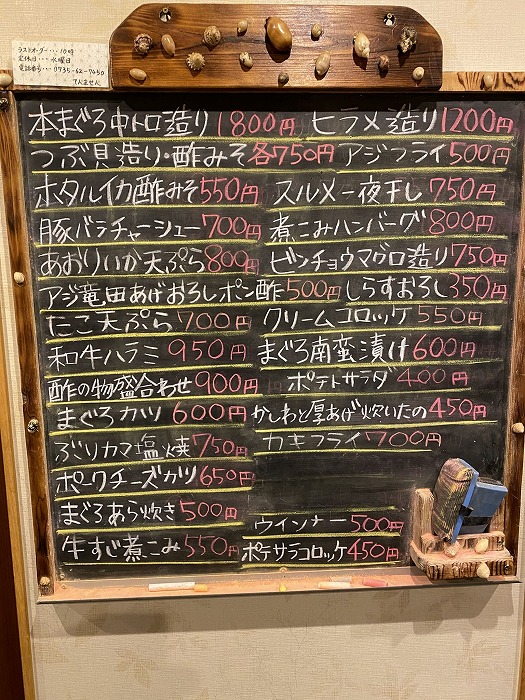 ラストオーダー・・・10時
定休日・・・水曜日
電話番号・・・0735-62-7050
てんません
本まぐろ中トロ造り1800円 ヒラメ造り1200円
つぶ貝造り・酢みそ各750円 アジフライ500円
ホタルイカ酢みそ550円 スルメ一夜干し750円
豚バラチャーシュー700円 煮こみハンバーグ800円
あおりいか天ぷら800円 ビンチョウマグロ造り750円
アジ竜田あげおろしポン酢500円 しらすおろし350円
たこ天ぷら700円 クリームコロッケ550円
和牛ハラミ950円 まぐろ南蛮漬け600円
酢の物盛合わせ900円 ポテトサラダ400円
まぐろカツ600円 かしわと厚あげ炊いたの450円
ぶりカマ塩焼750円 カキフライ700円
ポークチーズカツ650円
まぐろあら炊き500円 ウインナー500円
牛すじ煮こみ550円 ポテサラコロッケ450円